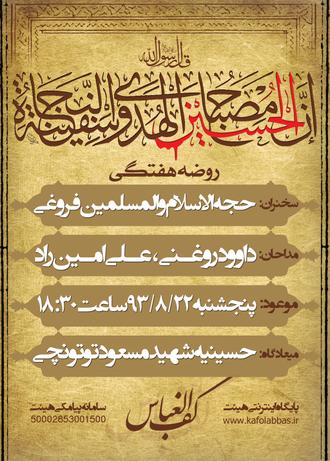 قال رسول الله
إن الحسین مصباح الهدی و سفینة النجاة
روضه هفتگی
سخنران: حجه الاسلام والمسلمین فروغی
مداحان: داوود روغنی، علی امین راد
موعود: پنجشنبه ۹۳/۸/۲۲ ساعت ۱۸:۳۰
میعادگاه: حسینیه شهید مسعود توتونچی
کف العباس
پایگاه اینترنتی هیئت
www.kafolabbas.ir
سامانه پیامکی هیئت
50002853001500